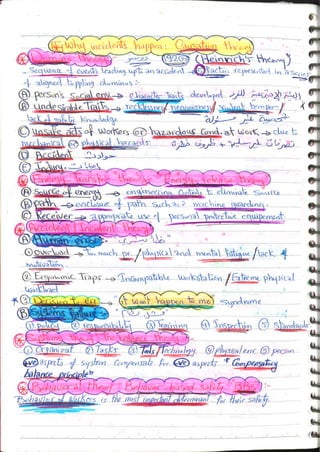 Why incidents happen: Causation theory
Domino theory 1920s (Heinrich's theory)
- Sequence of events leading up to an accident → 5 factors represented in a series
of aligned toppling dominos:-
Ⓐ person's social env. → character traits developed
Ⓑ undesirable Traits → recklessness / nervousness / violent temper /
lack of safety knowledge
Ⓒ unsafe acts of workers or hazardous cond. at work → due to
mechanical or physical hazards
Ⓓ Accident حوادث
Ⓔ Injury
Energy transfer theory: Energy release theory
Ⓐ Source of energy → engineering controls to eliminate source
Ⓑ path → enclosure of path such as: machine guarding.
Ⓒ Receiver → appropriate use of personal protective equipement
Accident / Incident theory
Ⓐ Human error
① overload → too much pr. / physical and mental fatigue / lack of
motivation
② Ergonomic Traps → Incompatible workstation / Extreme physical
workload
③ Decision to err → it won't happen to me syndrome
Ⓑ Systems failure
① policy ② responsibility ③ Training ④ Inspection ⑤ Standards
① Organizat. ② Tasks ③ Tools / Technology ④ physical env. ⑤ person
+ve aspects of system compensate for -ve aspects "Compensatory
balance principle"
Behavioral theory: Behavior based safety BBS
Behavior of workers is the most important determinant for their safety.